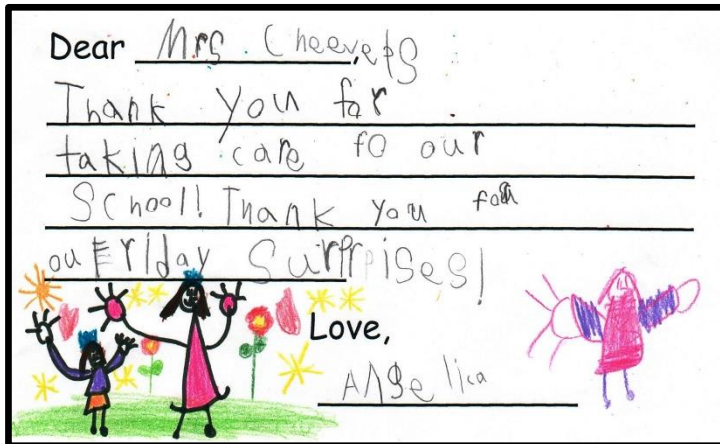 Dear Mrs. Cheevers,
Thank you for
taking care fo our
School! Thank you for
ou Friday Surprises!
Love,
Angelica